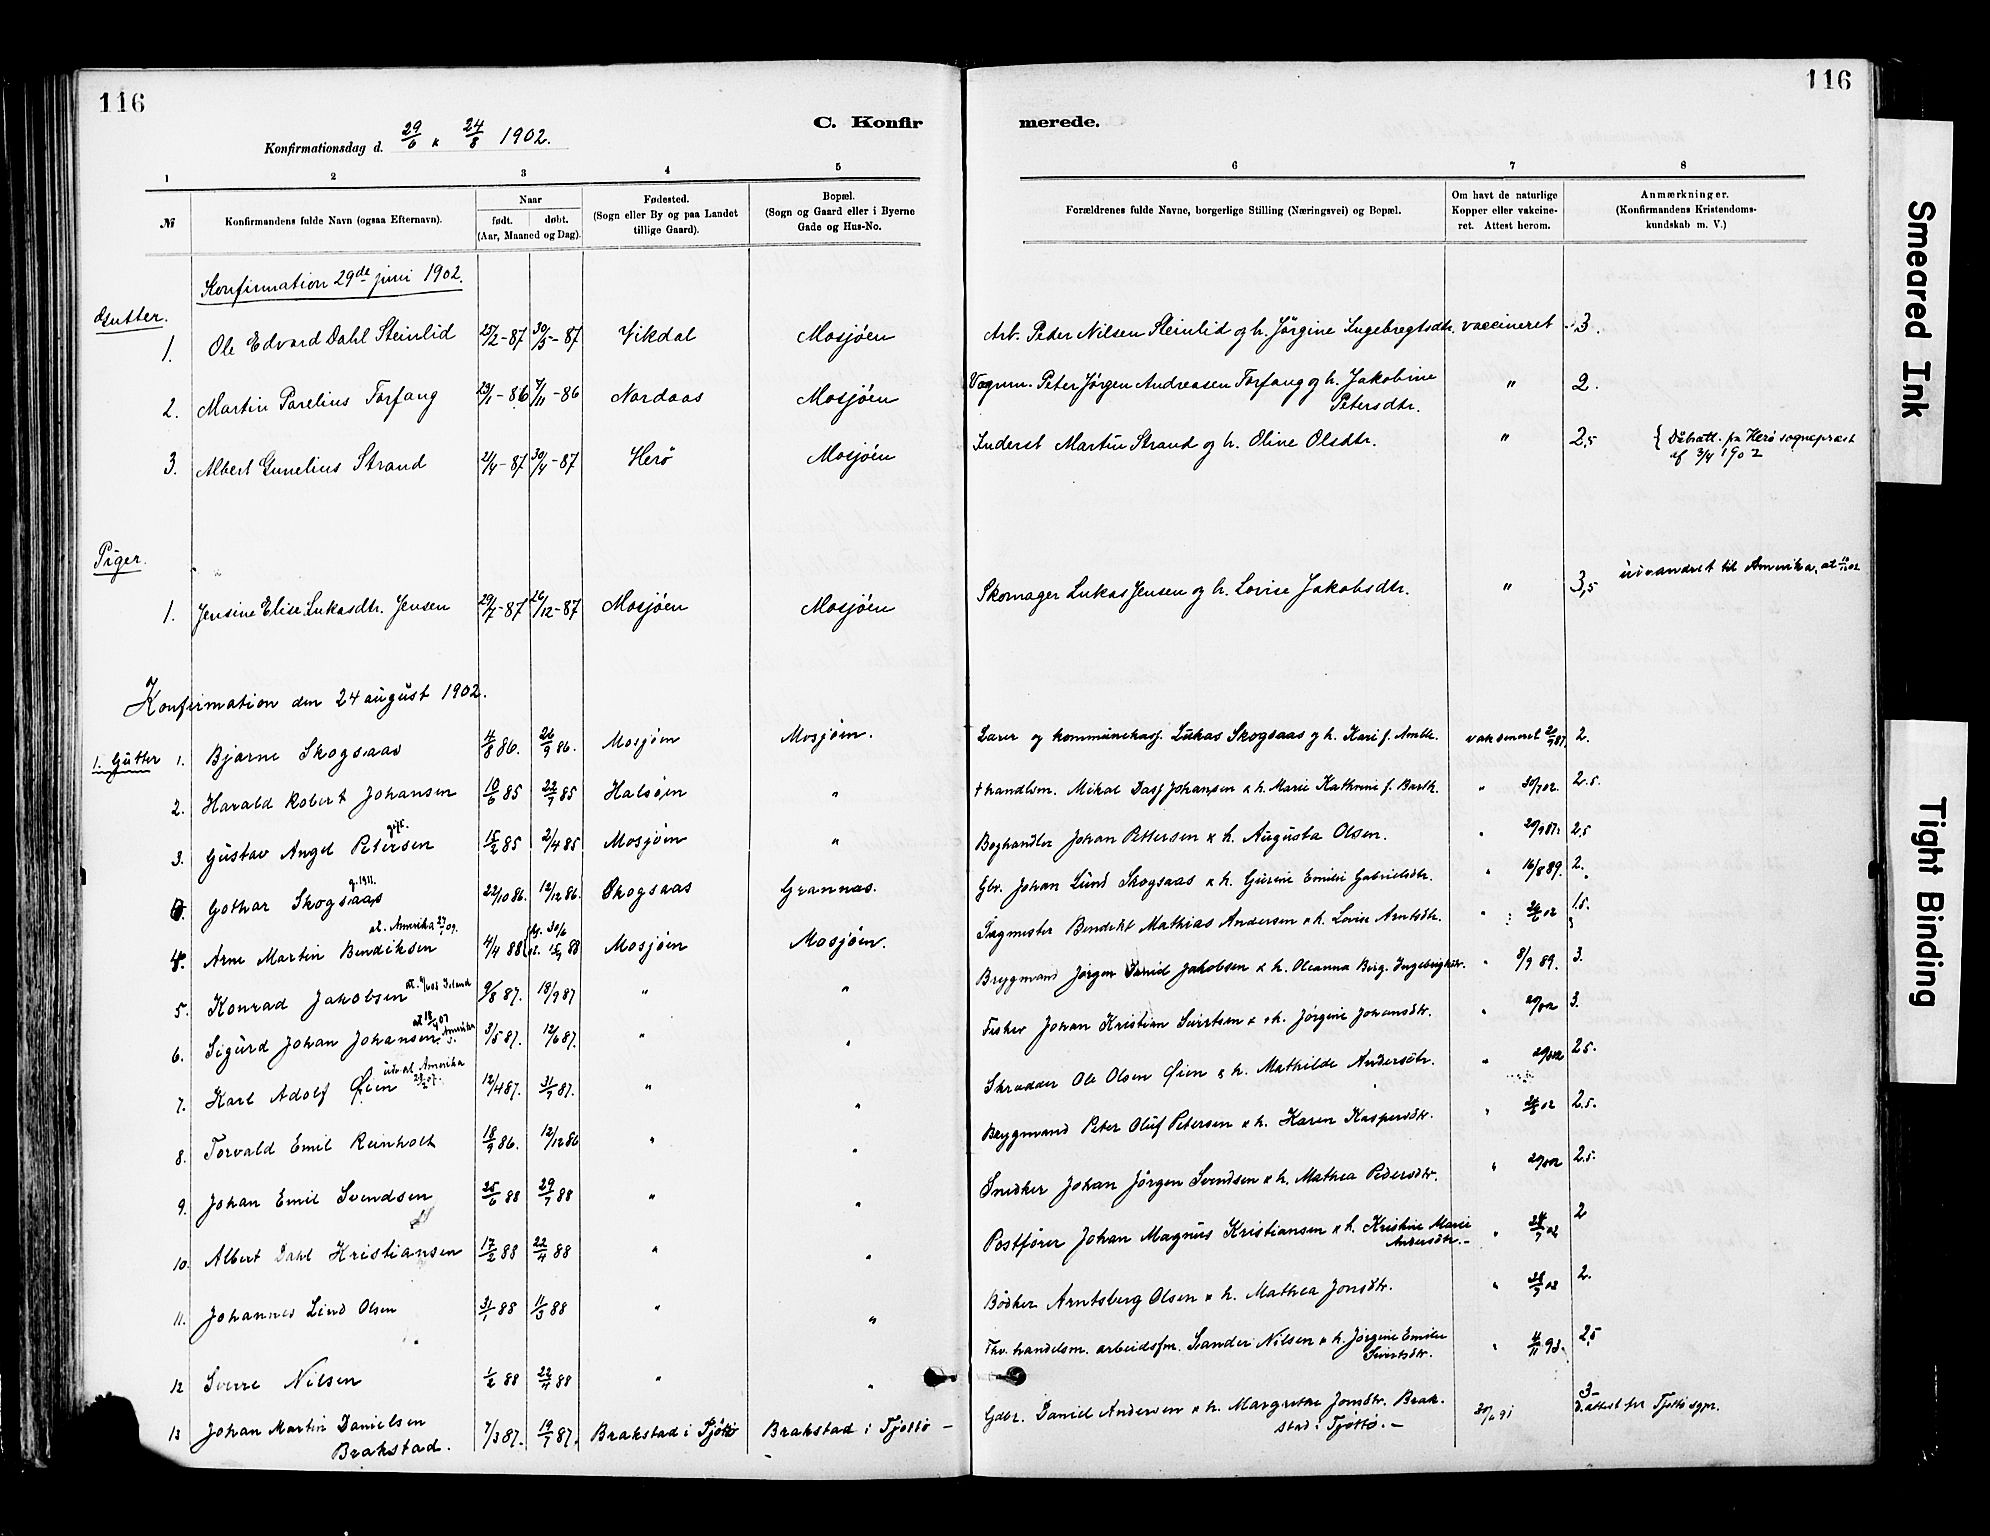 116
116
C. Konfirmerede.
Konfirmationsdag d. 29/6 & 24/8 1902.
1 2 3 4 5 6 7 8
№
Konfirmandens fulde Navn (ogsaa Efternavn).
Naar
født. døbt.
(Aar, Maaned og Dag).
Fødested.
(Sogn eller By og paa Landet
tillige Gaard).
Bopæl.
(Sogn og Gaard eller i Byerne
Gade og Hus-No.
Forældrenes fulde Navne, borgerlige Stilling (Næringsvei) og Bopæl.
Om havt de naturlige
Kopper eller vakcine-
ret. Attest herom.
Anmærkninger.
(Konfirmandens Kristendoms-
kundskab m. V.)
Konfirmation 29de juni 1902.
Gutter.
1. Ole Edvard Dahl Steinlid 25/2-87 30/5-87 Vikdal Mosjøen Arb. Peter Nilsen Steinlid og h. Jørgine Ingebregtsdtr. vaccineret 3.
2. Martin Parelius Forfang 23/1-86 7/11-86 Nordaas Mosjøen Vognm. Peter Jørgen Andreasen Forfang og h. Jakobine " 2.
Petersdtr.
3. Albert Gunelius Strand 21/4-87 30/4-87 Herø Mosjøen Inderst Martin Strand og h. Oline Olsdtr. " 2,5 Dåbsatt. fra Herø sogneprest
af 3/4 1902
Piger.
1. Jensine Elise Lukasdtr. Jensen 29/7-87 26/12-87 Mosjøen Mosjøen Skomager Lukas Jensen og h. Lovise Jakobsdtr. " 3,5 udvandret til Amerika, at
Konfirmation den 24 august 1902.
1. Gutter 1. Bjarne Skogsaas 4/8 86. 26/9 86. Mosjøen Mosjøen. Lærer og kommunekass. Lukas Skogsaas og h. Kari f. vaksineret 2.
2. Harald Robert Johansen 10/6 85 22/7 85 Halsøen " handlsm. Mikal Johansen & h. Marie Kathrine f. Barth. " 30/7 02. 2.5.
gift.
3. Gustav Angel Petersen 15/2 85 2/4 85 Mosjøen " Boghandler Johan Pettersen & h. Augusta Olsen. " 2,5
g. 1911.
Gothar Skogsaas 22/10 86. 12/12 86. Skogsaas Grannæs. Gbr. Johan Lund Skogsaas & h. Gurine Emilie Gabrielsdtr. " 16/8 89. 2.
at. Amerika
4. Arne Martin Bendiksen 4/4 88 88 Mosjøen Mosjøen. Sagmester Bendikt Mathias Andersen & h. Lovise Arntsdtr. " 1.5.
5. Konrad Jakobsen 9/8 87. 18/9 87 " " Bryggmand Jørgen Jakobsen & h. Oleanna Berg. Ingebrigtsdtr. " 8/9 89. 3.
at 18/4 07 Amerika
6. Sigurd Johan Johansen 3/5 87. 12/6 87. " " Fisker Johan Kristian Sivertsen & h. Jørgine Johansdtr. " 3.
udv. at. Amerika
7. Karl Adolf Øien 12/4 87. 31/7 87. " " Skrædder Ole Olsen Øien & h. Mathilde Andersdtr. " 2.5.
8. Torvald Emil Reinholt 18/9 86. 12/12 86 " " Bryggmand Peter Oluf Petersen & h. Karen Kaspersdtr. " 2.5.
9. Johan Emil Svendsen 25/6 88 29/7 88 " " Snedker Johan Jørgen Svendsen & h. Mathea Pedersdtr. " 2.5.
10. Albert Dahl Kristiansen 17/2 88 22/4 88 " " Postfører Johan Magnus Kristiansen & h. Kristine Marie " 2
Andersdtr.-
11. Johannes Lind Olsen 31/1 88 11/3 88 " " Bødker Arntsberg Olsen & h. Mathea Jonsdtr. " 2.
12 Sverre Nilsen 1/2 88 22/4 88 " " Fhv. handelsm. arbeidsfm. Sander Nilsen & h. Jørgine Emilie " 4/11 93. 2,5
Sivertsdtr.
13 Johan Martin Danielsen 7/3 87. 19/7 87. Brakstad i Tjøttø Brakstad i Tjøttø - Gdbr. Daniel Andersen & h. Margrethe Jonsdtr. Brak- 3-
Brakstad. stad i Tjøttø. - D.attest fra Tjøttø sgpr.
Smeared Ink
Tight Binding